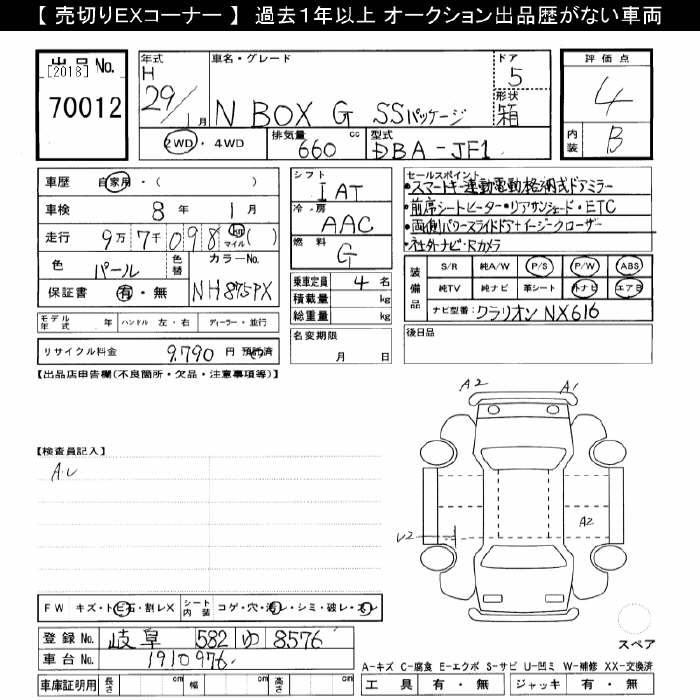 【 売切りEXコーナー 】 過去１年以上 オークション出品歴がない車両
出品 No.
[2018]
70012
年式 H 29/1月
車名・グレード
N BOX G SSパッケージ
ドア 5
形状 箱
評価点 4
内装 B
2WD・4WD
排気量 660 cc
型式 DBA-JF1
車歴 自家用・( )
車検 8年 1月
走行 9万7千098 km マイル ( )
色 パール
色替
カラーNo. NH875PX
保証書 有・無
シフト IAT
冷・房 AAC
燃料 G
乗車定員 4名
積載量 kg
総重量 kg
名変期限 月 日
セールスポイント
・スマートキー連動電動格納式ドアミラー
・前席シートヒーター・リアサンシェード・ETC
・両側パワースライドドア+イージークローザー
・社外ナビ・Rカメラ
装備品
S/R 純A/W P/S P/W ABS
純TV 純ナビ 革シート 外ナビ エアB
ナビ型番: クラリオン NX616
モデル年式 年 ハンドル 左・右 ディーラー・並行
リサイクル料金 9,790 円 預託済
後日品
【出品店申告欄(不良箇所・欠品・注意事項等)】
A2 A1
【検査員記入】
A2
FW キズ・トビ石・割レX
シート内装 コゲ・穴・汚レ・シミ・破レ・スレ
登録 No. 岐阜 582 ゆ 8576
車台 No. 1910976
スペア
A-キズ C-腐食 E-エクボ S-サビ U-凹ミ W-補修 XX-交換済
車庫証明用 長さ cm 幅 cm 高さ cm
工具 有・無 ジャッキ 有・無